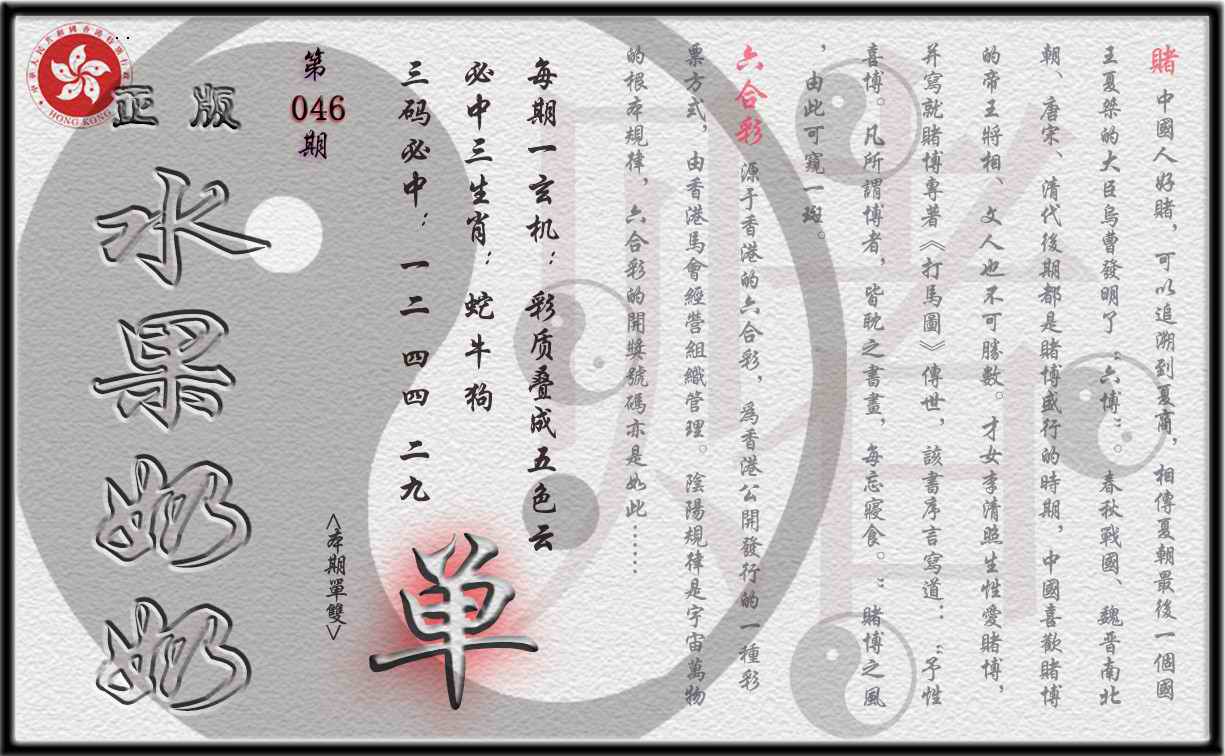 賭 中國人好賭，可以追溯到夏商，相傳夏朝最後一個國
王夏桀的大臣烏曹發明了“六博”。春秋戰國、魏晋南北
朝、唐宋、清代後期都是賭博盛行的時期，中國喜歡賭博
的帝王將相、文人也不可勝數。才女李清照生性愛賭博，
并寫就賭博專著《打馬圖》傳世，該書序言寫道：“予性
喜博。凡所謂博者，皆耽之書畫，每忘寢食。”賭博之風
，由此可窺一斑。
六合彩 源于香港的六合彩，爲香港公開發行的一種彩
票方式，由香港馬會經營組織管理。陰陽規律是宇宙萬物
的根本規律，六合彩的開獎號碼亦是如此……
每期一玄机：彩质叠成五色云
必中三生肖：蛇牛狗
三码必中：一二 四四 二九
单
<本期單雙>
第
046
期
正版
水果奶奶
中華人民共和國香港特別行政區
HONG KONG